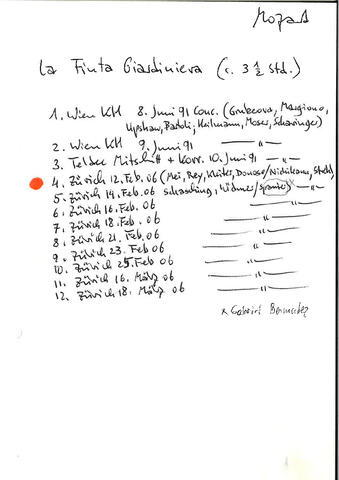 Mozart
La Finta Giardiniera (c. 3 1/2 Std.)
1. Wien KH 8. Juni 91 Conc. (Gruberova, Margiono,
Upshaw, Bacelli, Heilmann, Moser, Scharinger)
2. Wien KH 9. Juni 91 —"—
3. Teldec Mitschnitt + Korr. 10. Juni 91 —"—
4. Zürich 12. Feb. 06 (Mei, Rey, Donose/Nidnikann,
5. Zürich 14. Feb. 06 Schasching, Widmer/ —"—
6. Zürich 16. Feb. 06 —"—
7. Zürich 18. Feb. 06 —"—
8. Zürich 21. Feb. 06 —"—
9. Zürich 23. Feb 06 —"—
10. Zürich 25. Feb 06 —"—
11. Zürich 16. März 06 —"—
12. Zürich 18. März 06 —"—
x Gabriel Bermudez